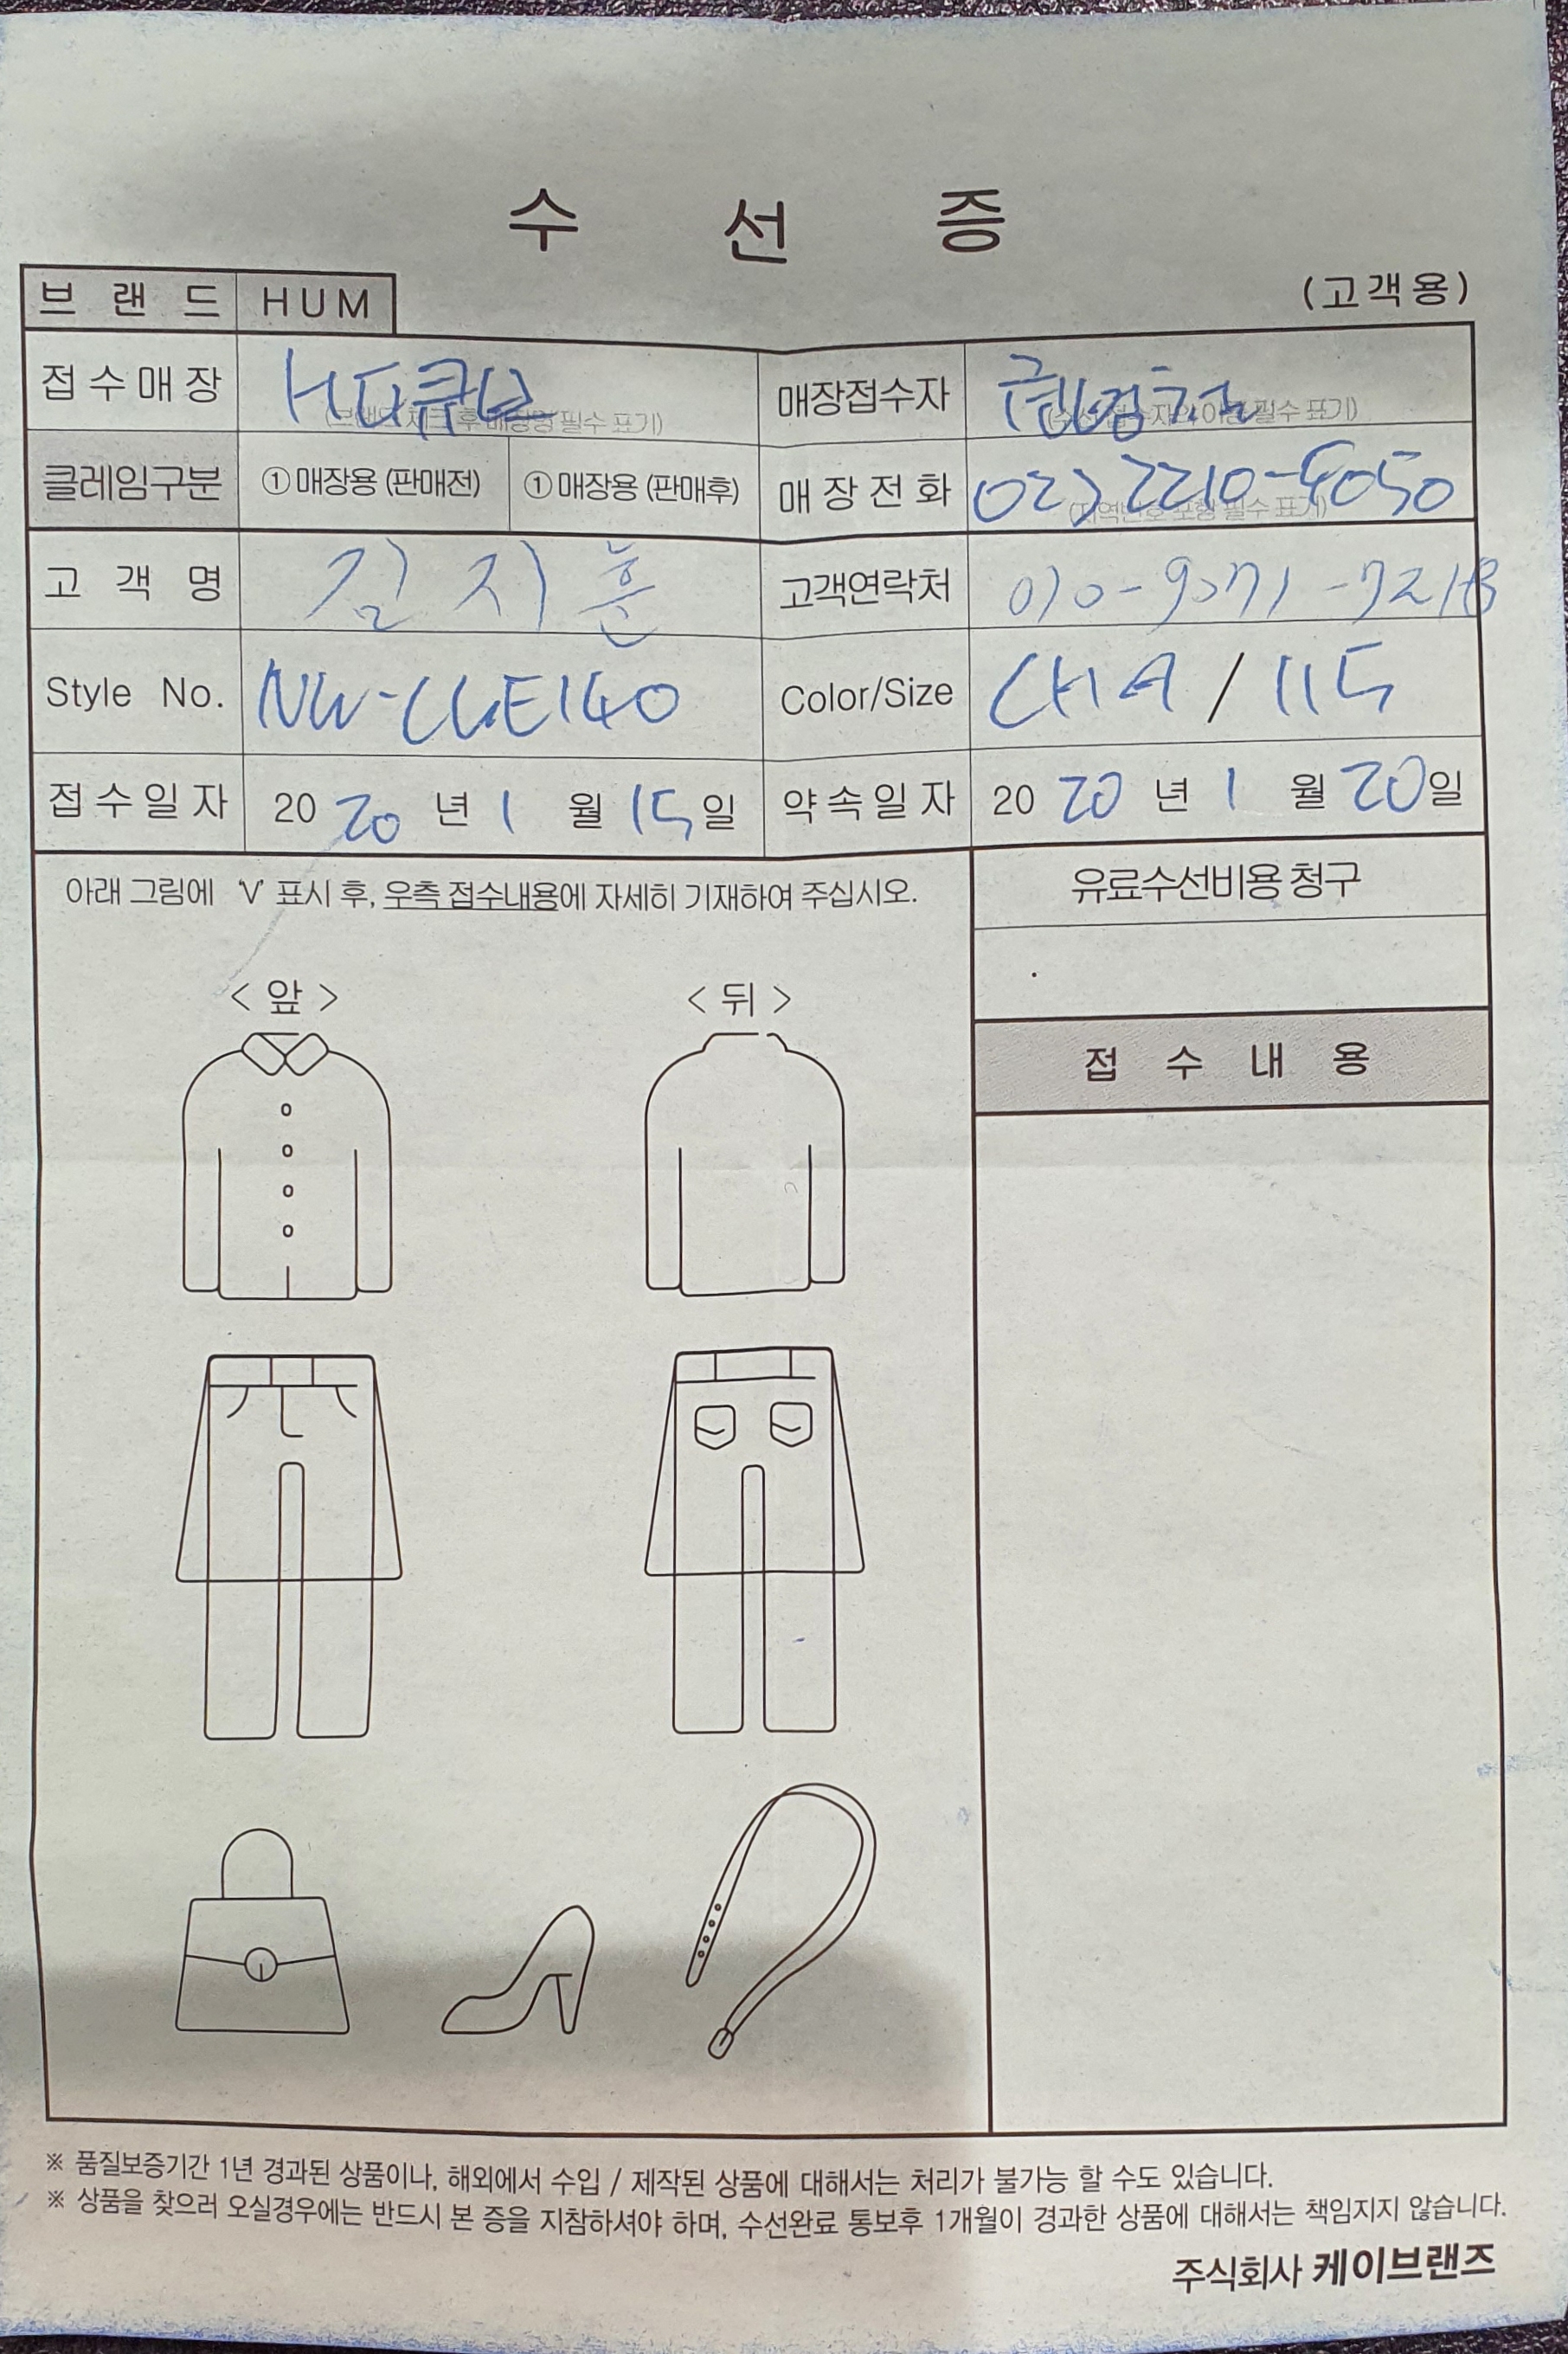 수 선 증
브 랜 드 HUM (고객용)
접수매장 HD큐브 매장접수자
(브랜드 체크 후 매장명 필수 표기)
클레임구분 ①매장용 (판매전) ①매장용 (판매후) 매장전화 02) 2210-5050
(지역번호 포함 필수 표기)
고 객 명 김지훈 고객연락처
Style No. Color/Size CHA / 115
접수일자 2020 년 1 월 15일 약속일자 2020 년 1 월 20일
아래 그림에 'V' 표시 후, 우측 접수내용에 자세히 기재하여 주십시오.
유료수선비용 청구
< 앞 > < 뒤 >
접 수 내 용
※ 품질보증기간 1년 경과된 상품이나, 해외에서 수입 / 제작된 상품에 대해서는 처리가 불가능 할 수도 있습니다.
※ 상품을 찾으러 오실경우에는 반드시 본 증을 지참하셔야 하며, 수선완료 통보후 1개월이 경과한 상품에 대해서는 책임지지 않습니다.
주식회사 케이브랜즈